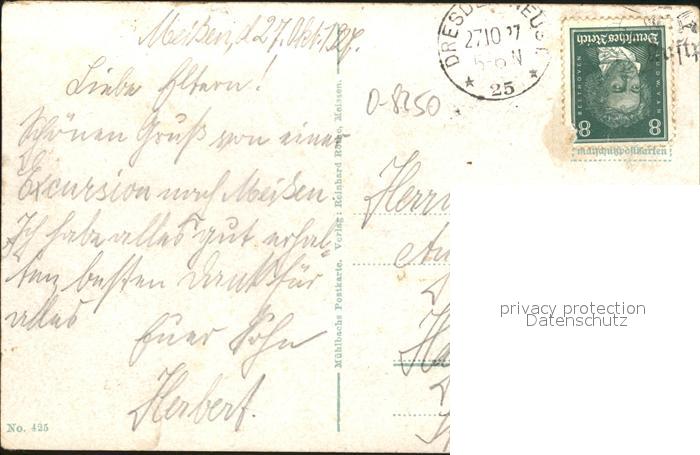 Meißen, d. 27. Okt. 1927.
Liebe Eltern!
Schönen Gruß von einer
Excursion nach Meißen.
Ich habe alles gut erhal-
ten besten Dank für
alles
Euer Sohn
Herbert.
No. 425
Mühlbachs Postkarte. Verlag: Reinhard Rothe, Meissen.
0-8250
DRESDEN-NEUST
27.10.27
5-6 N
* 25 *
Deutsches Reich
BEETHOVEN
LUDW. VAN
8 8
Herrn
privacy protection
Datenschutz